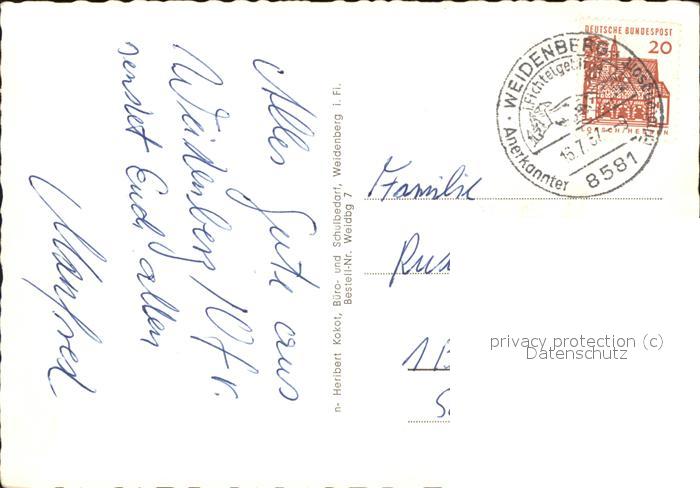 Alles Gute aus
Weidenberg/Ofr.
sendet Euch allen
Manfred
n- Heribert Kokot, Büro- und Schulbedarf, Weidenberg i. Fi.
Bestell-Nr. Weidbg 7
DEUTSCHE BUNDESPOST
20
LORSCH/HESSEN
WEIDENBERG
Fichtelgebirge
Anerkannter
8581
Familie
privacy protection (c)
Datenschutz